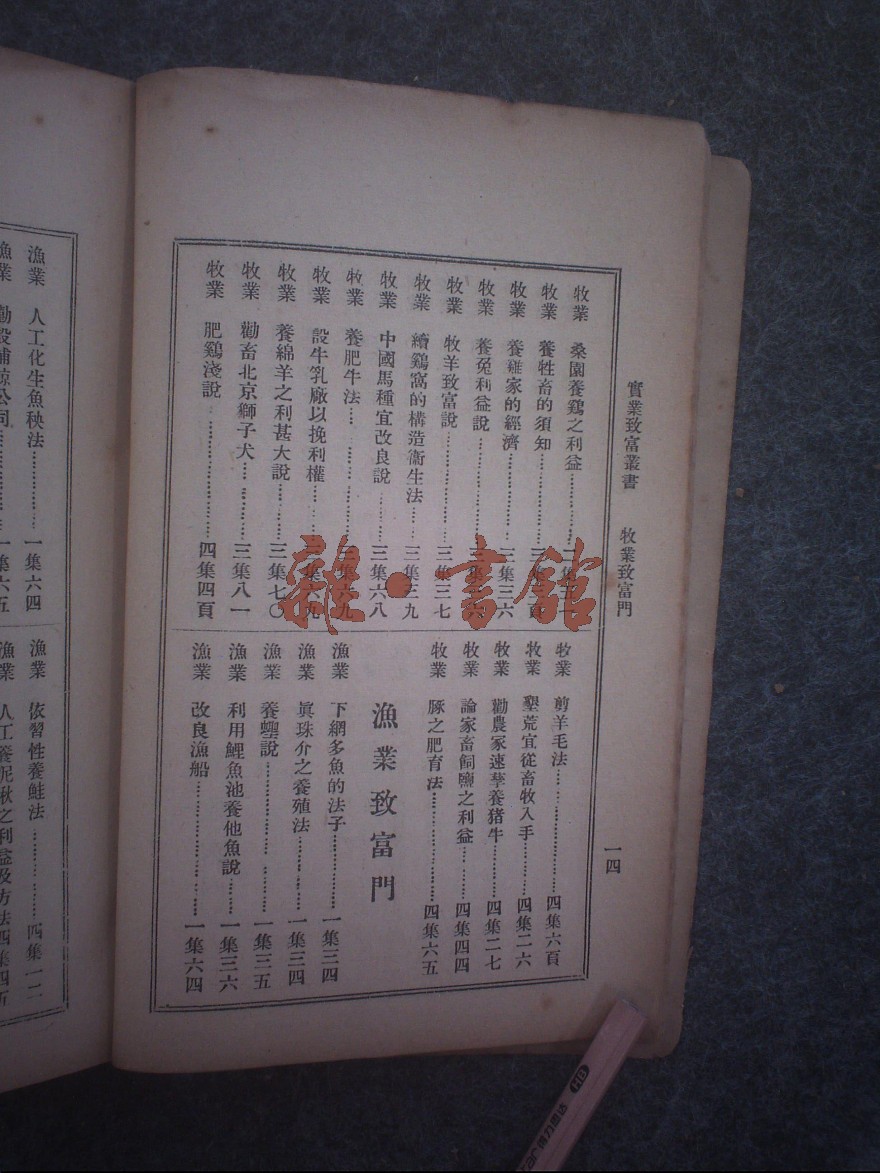 實業致富叢書 牧業致富門 一四
牧業 桑園養鷄之利益
牧業 養牲畜的須知
牧業 養雞家的經濟 三集三六
牧業 養兔利益說
牧業 牧羊致富說 三集三七
牧業 續鷄窩的構造衞生法 三集三九
牧業 中國馬種宜改良說 三集六八
牧業 養肥牛法 三集六九
牧業 設牛乳廠以挽利權 三集六九
牧業 養綿羊之利甚大說 三集七〇
牧業 勸畜北京獅子犬 三集八一
牧業 肥鷄淺說 四集四頁
牧業 剪羊毛法 四集六頁
牧業 墾荒宜從畜牧入手 四集二六
牧業 勸農家速孳養猪牛 四集二七
牧業 論家畜飼鹽之利益 四集四四
牧業 豚之肥育法 四集六五
漁業致富門
漁業 下網多魚的法子 一集三四
漁業 眞珠介之養殖法 一集三四
漁業 養蟶說 一集三五
漁業 利用鯉魚池養他魚說 一集三六
漁業 改良漁船 一集六四
漁業 人工化生魚秧法 一集六四
漁業 勸設捕鯨公司 一集六五
漁業 依習性養鮭法 四集一二
漁業 人工養泥鰍之利益及方法 四集四五
雜·書館
HB